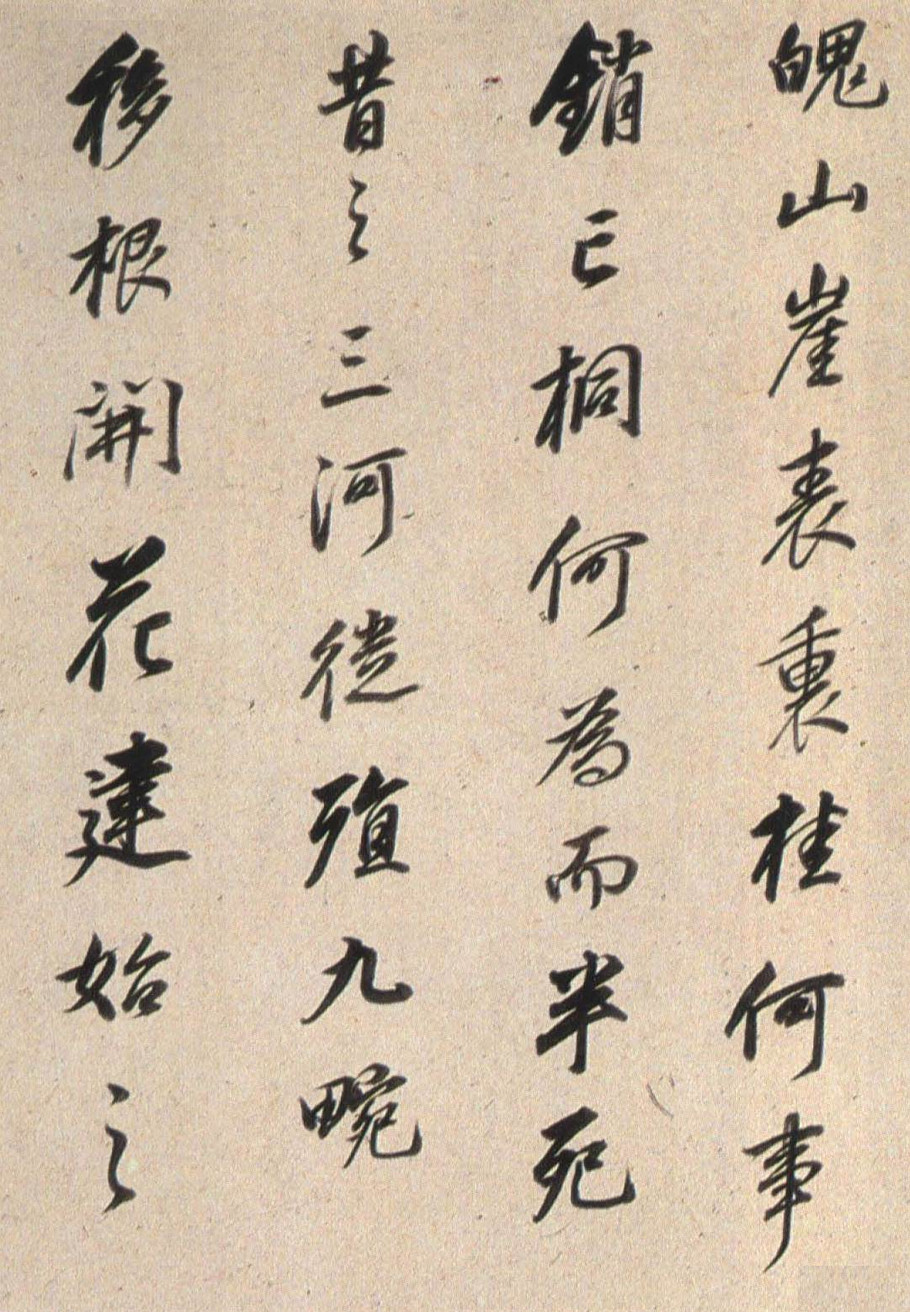 魄山崖表裏桂何事
銷亡桐何為而半死
昔之三河徙殖九畹
移根開花建始之